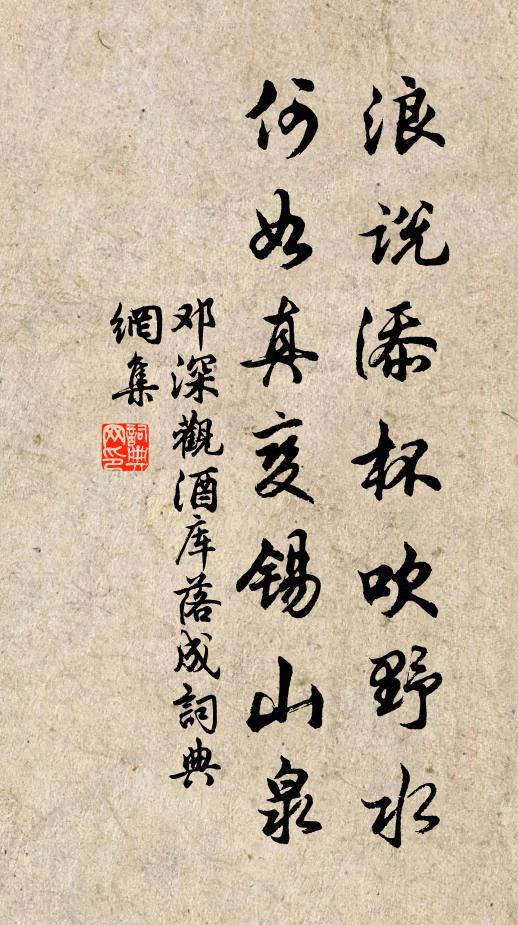 浪说添杯吹野水
何如真变锡山泉
邓深觀酒库落成詞典
網集
詞典
网印